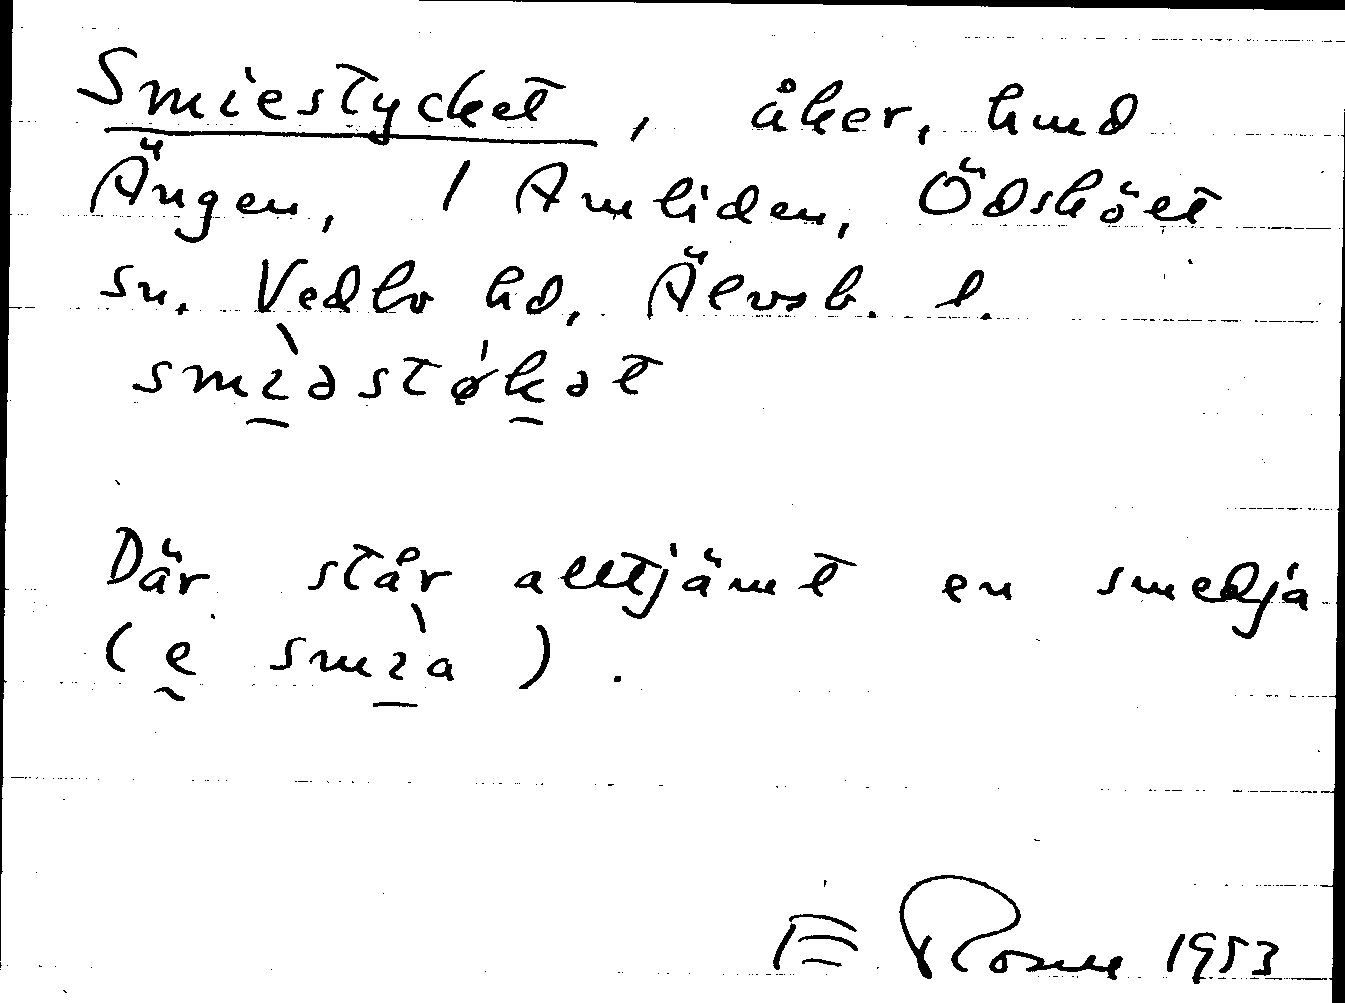 Smiestycket, åker, hmd
Ängen, 1 Amliden, Ödskölt
sn. Vedbo hd, Älvsb. l.
smìəstǿkət
Där står alltjämt en smedja
(e smìa).
E Rosell 1953